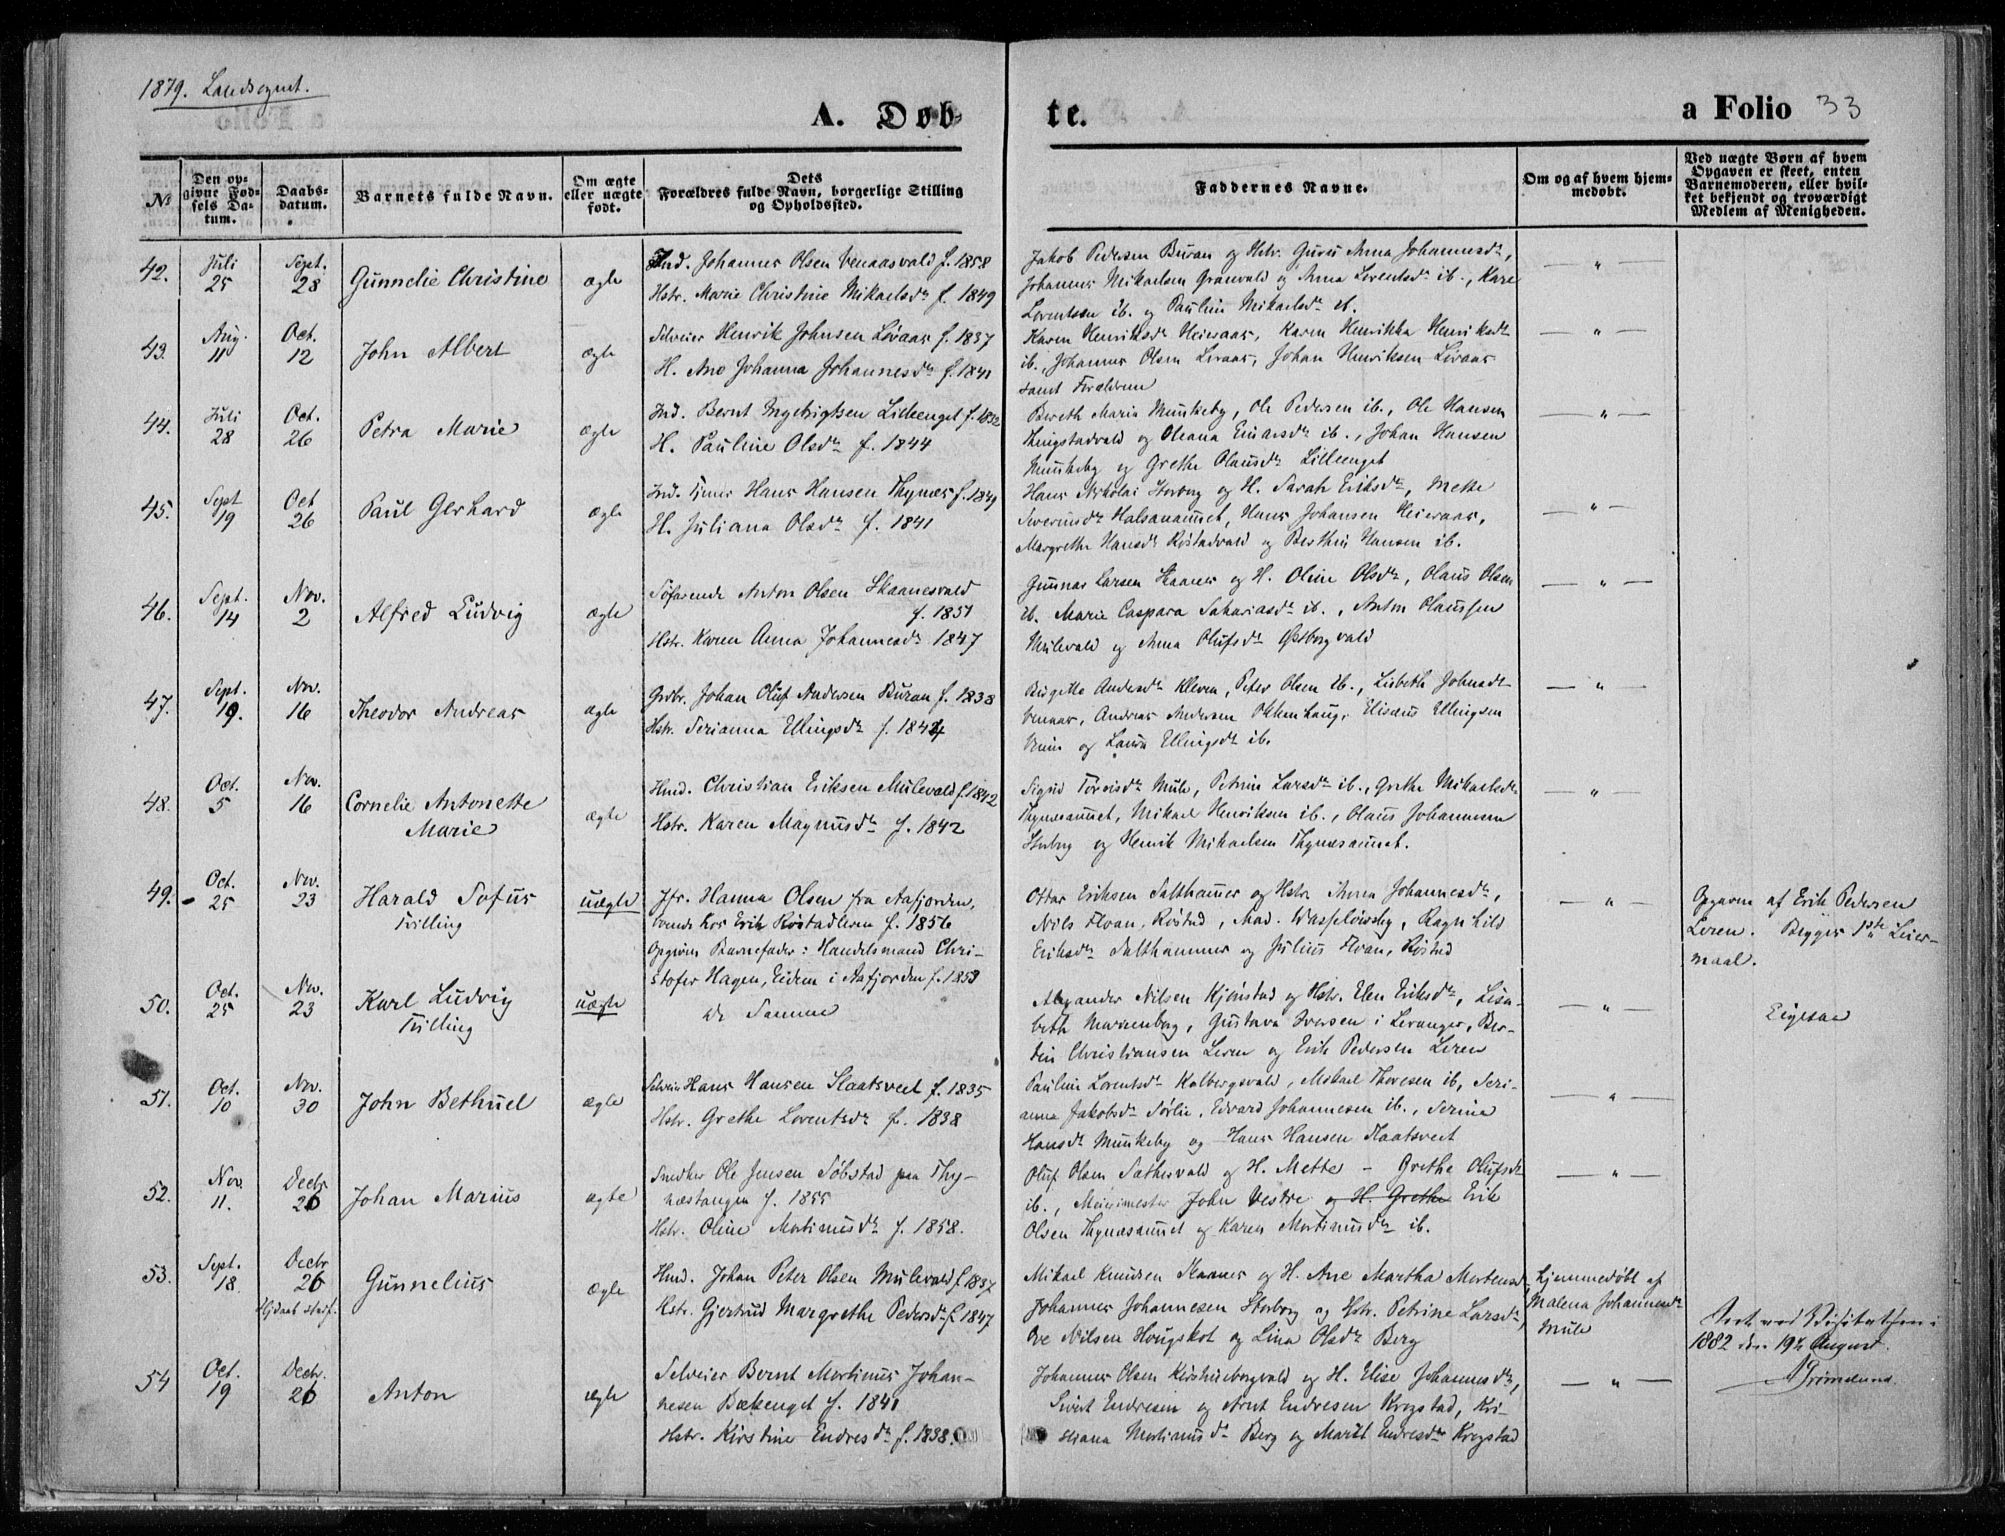 1879. Landsognet.
A. Døb-
te.
a Folio 33
No
Den op-
givne Fød-
sels Da-
tum.
Daabs-
datum.
Barnets fulde Navn.
Om ægte
eller uægte
født.
Dets
Forældres fulde Navn, borgerlige Stilling
og Opholdssted.
Faddernes Navne.
Om og af hvem hjem-
medøbt.
Ved uægte Børn af hvem
Opgaven er skeet, enten
Barnemoderen, eller hvil-
ket bekjendt og troværdigt
Medlem af Menigheden.
42.
Juli
25
Sept.
28
Gunnelie Christine
ægte
Ind. Johannes Olsen Venaasvald f. 1858
Hstr. Marie Christine Mikaelsdr f. 1849
Jakob Pedersen Buran og Hstr. Guru Anna Johannesdr,
Johannes Mikaelsen Granvald og Anna Lorentsdr ib., Kare
Lorentsen ib. og Pauline Mikaelsdr ib.
— " —
43.
Aug.
11
Oct.
12
John Albert
ægte
Selveier Henrik Johnsen Lövaas f. 1837
H. Ane Johanna Johannesdr f. 1841
Karen Henriksdr Heieraas, Karen Henrikka Henriksdr
ib., Johannes Olsen Lövaas, Johan Henriksen Lövaas
samt Forældrene
— " —
44.
Juli
28
Oct.
26
Petra Marie
ægte
Ind. Bernt Ingebrigtsen Lilleenget f. 1832
H. Pauline Olsdr f. 1844
Bereth Maria Munkeby, Ole Pedersen ib., Ole Hansen
Ringstadvald og Oleana Einarsdr ib., Johan Hansen
Munkeby og Grethe Olausdr Lilleenget
— " —
45.
Sept
19
Oct
26
Paul Gerhard
ægte
Ind. Tjener Hans Hansen Thynæs f. 1849
H. Juliana Olsdr f. 1841
Hans Nikolai Storborg og H. Sarah Eriksdr, Mette
Severinsdr Halsanaunet, Hans Johansen Heieraas,
Margrethe Hansdr Röstadvald og Berthin Hansen ib.
— " —
46.
Sept.
14
Nov.
2
Alfred Ludvig
ægte
Söfarende Anton Olsen Skaanesvald
f. 1851
Hstr. Karen Anna Johannesdr 1847
Gunnar Larsen Skaanes og H. Oline Olsdr, Olaus Olsen
ib. Marie Caspara Sakariasdr ib., Anton Olaussen
Mulevald og Anna Olufsdr Östborgvald
— " —
47.
Sept.
19.
Nov.
16
Theodor Andreas
ægte
Grdbr. Johan Oluf Andersen Buran f. 1838
Hstr. Serianna Ellingsdr f. 1844
Birgitte Andersdr Kleven, Peter Olsen ib., Lisbeth Johnsdr
Venaas, Andreas Andersen Okkenhaug, Eliseus Ellingsen
og Laura Ellingsdr ib.
— " —
48.
Oct.
5
Nov.
16
Cornelie Antonette
Marie
ægte
Hmd. Christian Eriksen Mulevald f. 1842
Hstr. Karen Magnusdr f. 1842
Sigrid Torrisdr Mule, Petrine Larsdr ib., Grethe Mikaelsdr
Thynæsaunet, Mikael Henriksen ib., Olaus Johannesen
Storborg og Henrik Mikaelsen Thynæsaunet.
— " —
49.
Oct.
25
Nov.
23
Harald Sofus
Tvilling
uægte
Jfr. Hanna Olsen fra Aafjorden,
boende hos Erik Röstadleren f. 1856
Opgiven Barnefader: Handelsmand Chri-
stofer Hagen, Eidem i Aafjorden f. 1853
Ottar Eriksen Salthammer og Hstr. Anna Johannesdr,
Nils Floan, Röstad, Mad. Wasslövsky, Ragnhild
Eriksdr Salthammer og Julius Floan, Röstad
— " —
Opgaven af Erik Pedersen
Leren. Begges 1ste Leier-
maal.
50.
Oct.
25
Nov.
23
Karl Ludvig
Tvilling
uægte
de Samme
Alexander Nilsen Kjönstad og Hstr. Elen Eriksdr, Lisa-
beth Marienborg, Gustava Iversen i Levanger, Ber-
tin Christiansen Leren og Erik Pedersen Leren
— " —
Ligesaa
51.
Oct.
10
Nov.
30
John Bethuel
ægte
Selveier Hans Hansen Slaatsveet f. 1835
Hstr. Grethe Lorentsdr f. 1838
Pauline Lorentsdr Kolbergsvald, Mikael Thoresen ib, Seri-
anna Jakobsdr Sörlie, Edvard Johannesen ib., Serina
Hansdr Munkeby og Hans Hansen Slaatsveet
— " —
52.
Nov.
11.
Decbr
26
Johan Marius
ægte
Snedker Ole Jensen Söbstad paa Thy-
næstangen f. 1855
Hstr. Oline Mortinusdr f. 1858.
Oluf Olsen Sathesvald og H. Mette - Grethe Olufsdr
ib., Meierimester John Vestre og H. Grethe Erik
Olsen Thynæsaunet og Karen Mortinusdr ib.
— " —
53.
Sept.
18
Decbr
26
Hjdaab stadf.
Gunnelius
ægte
Hmd. Johan Peter Olsen Mulevald f. 1837
Hstr. Gjertrud Margrethe Pedersdr f. 1847
Mikael Knudsen Skaanes og H. Ane Martha Mortensdr
Johannes Johannesen Storborg og Hstr. Petrine Larsdr,
Ove Nilsen Hougskot og Lina Olsdr Berg
Hjemmedøbt af
Malena Johannesdr
Mule
ved Visitatsen
1882 den 19de August.
54
Oct.
19
Decbr.
26
Anton
ægte
Selveier Bernt Mortinus Johan-
nesen Bækenget f. 1841
Hstr. Kirstine Endresdr f. 1838.
Johannes Olsen Kirstineborgvald og H. Elise Johannesdr,
Sivert Endresen og Arnt Endresen Krogstad, Kri-
stiana Mortinusdr Berg og Marit Endresdr Krogstad
— " —